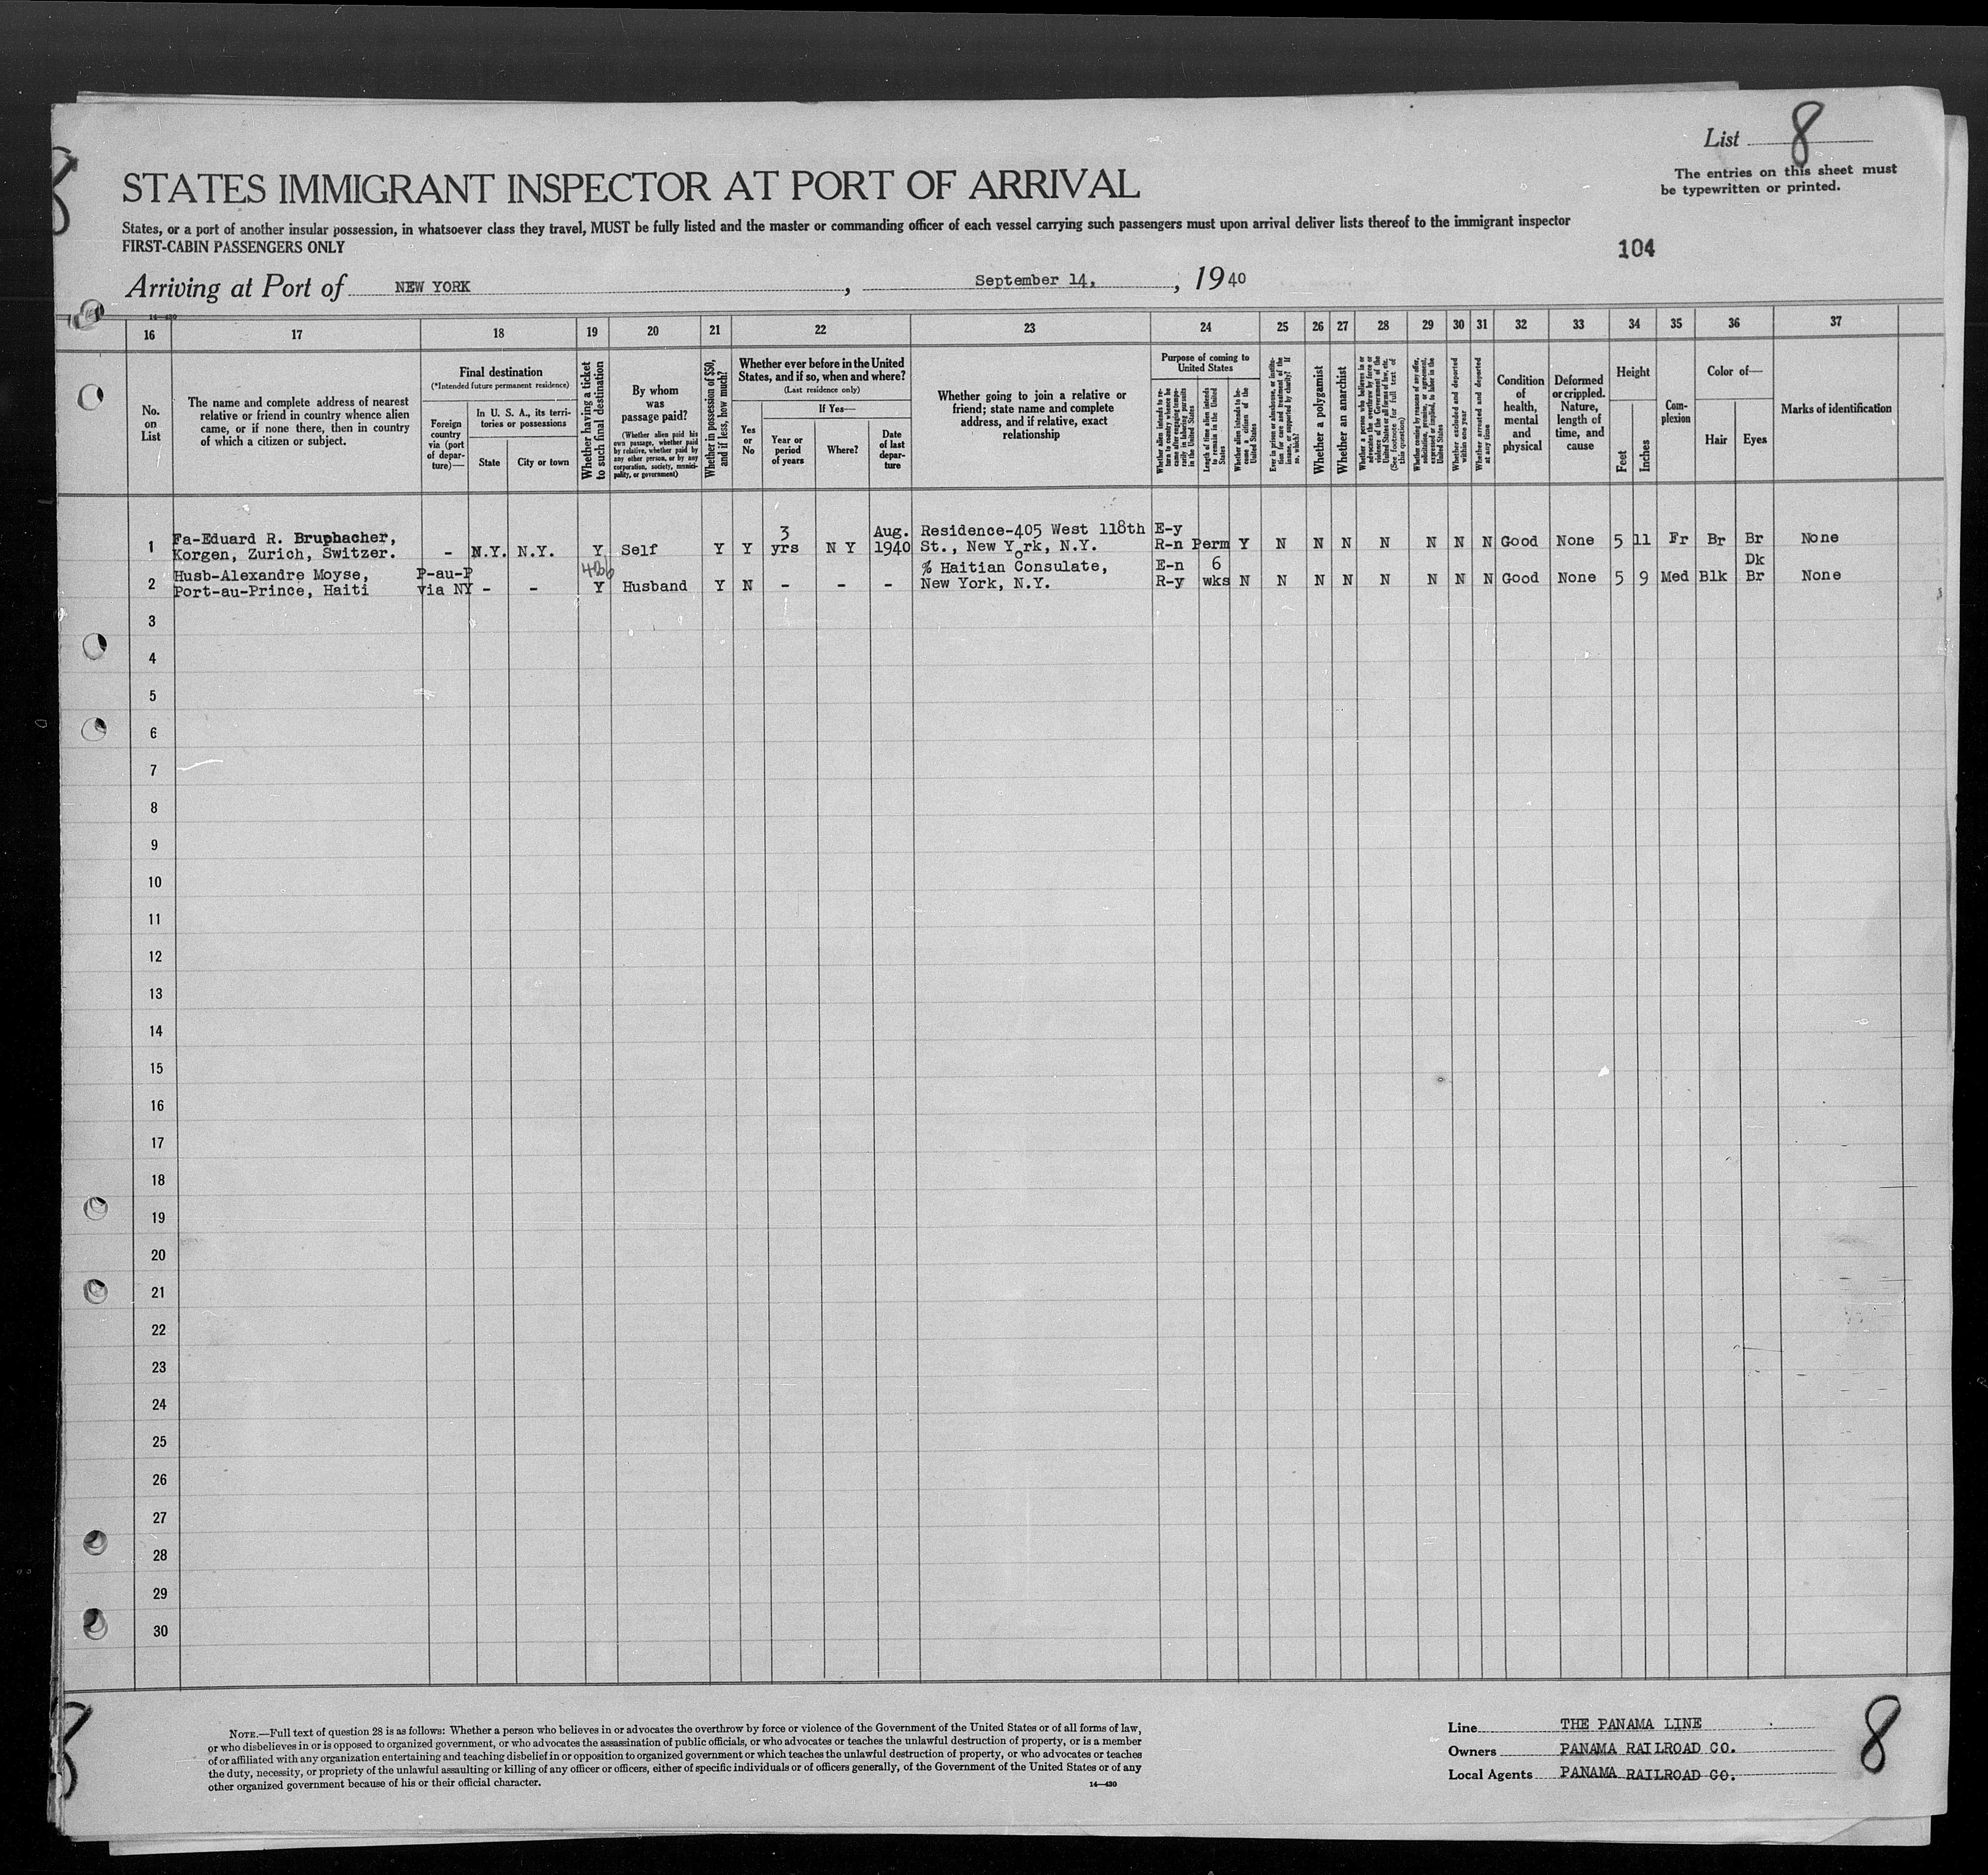 List 8
The entries on this sheet must
be typewritten or printed.
STATES IMMIGRANT INSPECTOR AT PORT OF ARRIVAL
States, or a port of another insular possession, in whatsoever class they travel, MUST be fully listed and the master or commanding officer of each vessel carrying such passengers must upon arrival deliver lists thereof to the immigrant inspector
FIRST-CABIN PASSENGERS ONLY
104
Arriving at Port of NEW YORK, September 14, , 1940
14—430
16 17 18 19 20 21 22 23 24 25 26 27 28 29 30 31 32 33 34 35 36 37
No.
on
List
The name and complete address of nearest
relative or friend in country whence alien
came, or if none there, then in country
of which a citizen or subject.
Final destination
(*Intended future permanent residence)
Foreign
country
via (port
of depar-
ture)—
In U. S. A., its terri-
tories or possessions
State
City or town
Whether having a ticket
to such final destination
By whom
was
passage paid?
(Whether alien paid his
own passage, whether paid
by relative, whether paid by
any other person, or by any
corporation, society, munici-
pality, or government)
Whether in possession of $50,
and if less, how much?
Whether ever before in the United
States, and if so, when and where?
(Last residence only)
Yes
or
No
If Yes—
Year or
period
of years
Where?
Date
of last
depar-
ture
Whether going to join a relative or
friend; state name and complete
address, and if relative, exact
relationship
Purpose of coming to
United States
Whether alien intends to re-
turn to country whence he
came after engaging tempo-
rarily in laboring pursuits
in the United States
Length of time alien intends
to remain in the United
States
Whether alien intends to be-
come a citizen of the
United States
Ever in prison or almshouse, or institu-
tion for care and treatment of the
insane, or supported by charity? If
so, which?
Whether a polygamist
Whether an anarchist
Whether a person who believes in or
advocates the overthrow by force or
violence of the Government of the
United States or all forms of law, etc.
(See footnote for full text of
this question)
Whether coming by reason of any offer,
solicitation, promise, or agreement,
expressed or implied, to labor in the
United States
Whether excluded and deported
within one year
Whether arrested and deported
at any time
Condition
of
health,
mental
and
physical
Deformed
or crippled.
Nature,
length of
time, and
cause
Height
Feet
Inches
Com-
plexion
Color of—
Hair
Eyes
Marks of identification
3 Aug. Residence-405 West 118th E-y
Fa-Eduard R. Brupbacher,
1 Korgen, Zurich, Switzer. - N.Y. N.Y. Y Self Y Y yrs N Y 1940 St., New York, N.Y. R-n Perm Y N N N N N N N Good None 5 11 Fr Br Br None
Husb-Alexandre Moyse, P-au-P % Haitian Consulate, E-n 6 Dk
2 Port-au-Prince, Haiti via NY - - Y Husband Y N - - - New York, N.Y. R-y wks N N N N N N N N Good None 5 9 Med Blk Br None
3
4
5
6
7
8
9
10
11
12
13
14
15
16
17
18
19
20
21
22
23
24
25
26
27
28
29
30
NOTE.—Full text of question 28 is as follows: Whether a person who believes in or advocates the overthrow by force or violence of the Government of the United States or of all forms of law,
or who disbelieves in or is opposed to organized government, or who advocates the assassination of public officials, or who advocates or teaches the unlawful destruction of property, or is a member
of or affiliated with any organization entertaining and teaching disbelief in or opposition to organized government or which teaches the unlawful destruction of property, or who advocates or teaches
the duty, necessity, or propriety of the unlawful assaulting or killing of any officer or officers, either of specific individuals or of officers generally, of the Government of the United States or of any
other organized government because of his or their official character.
14—430
Line THE PANAMA LINE
Owners PANAMA RAILROAD CO.
Local Agents PANAMA RAILROAD CO.
8